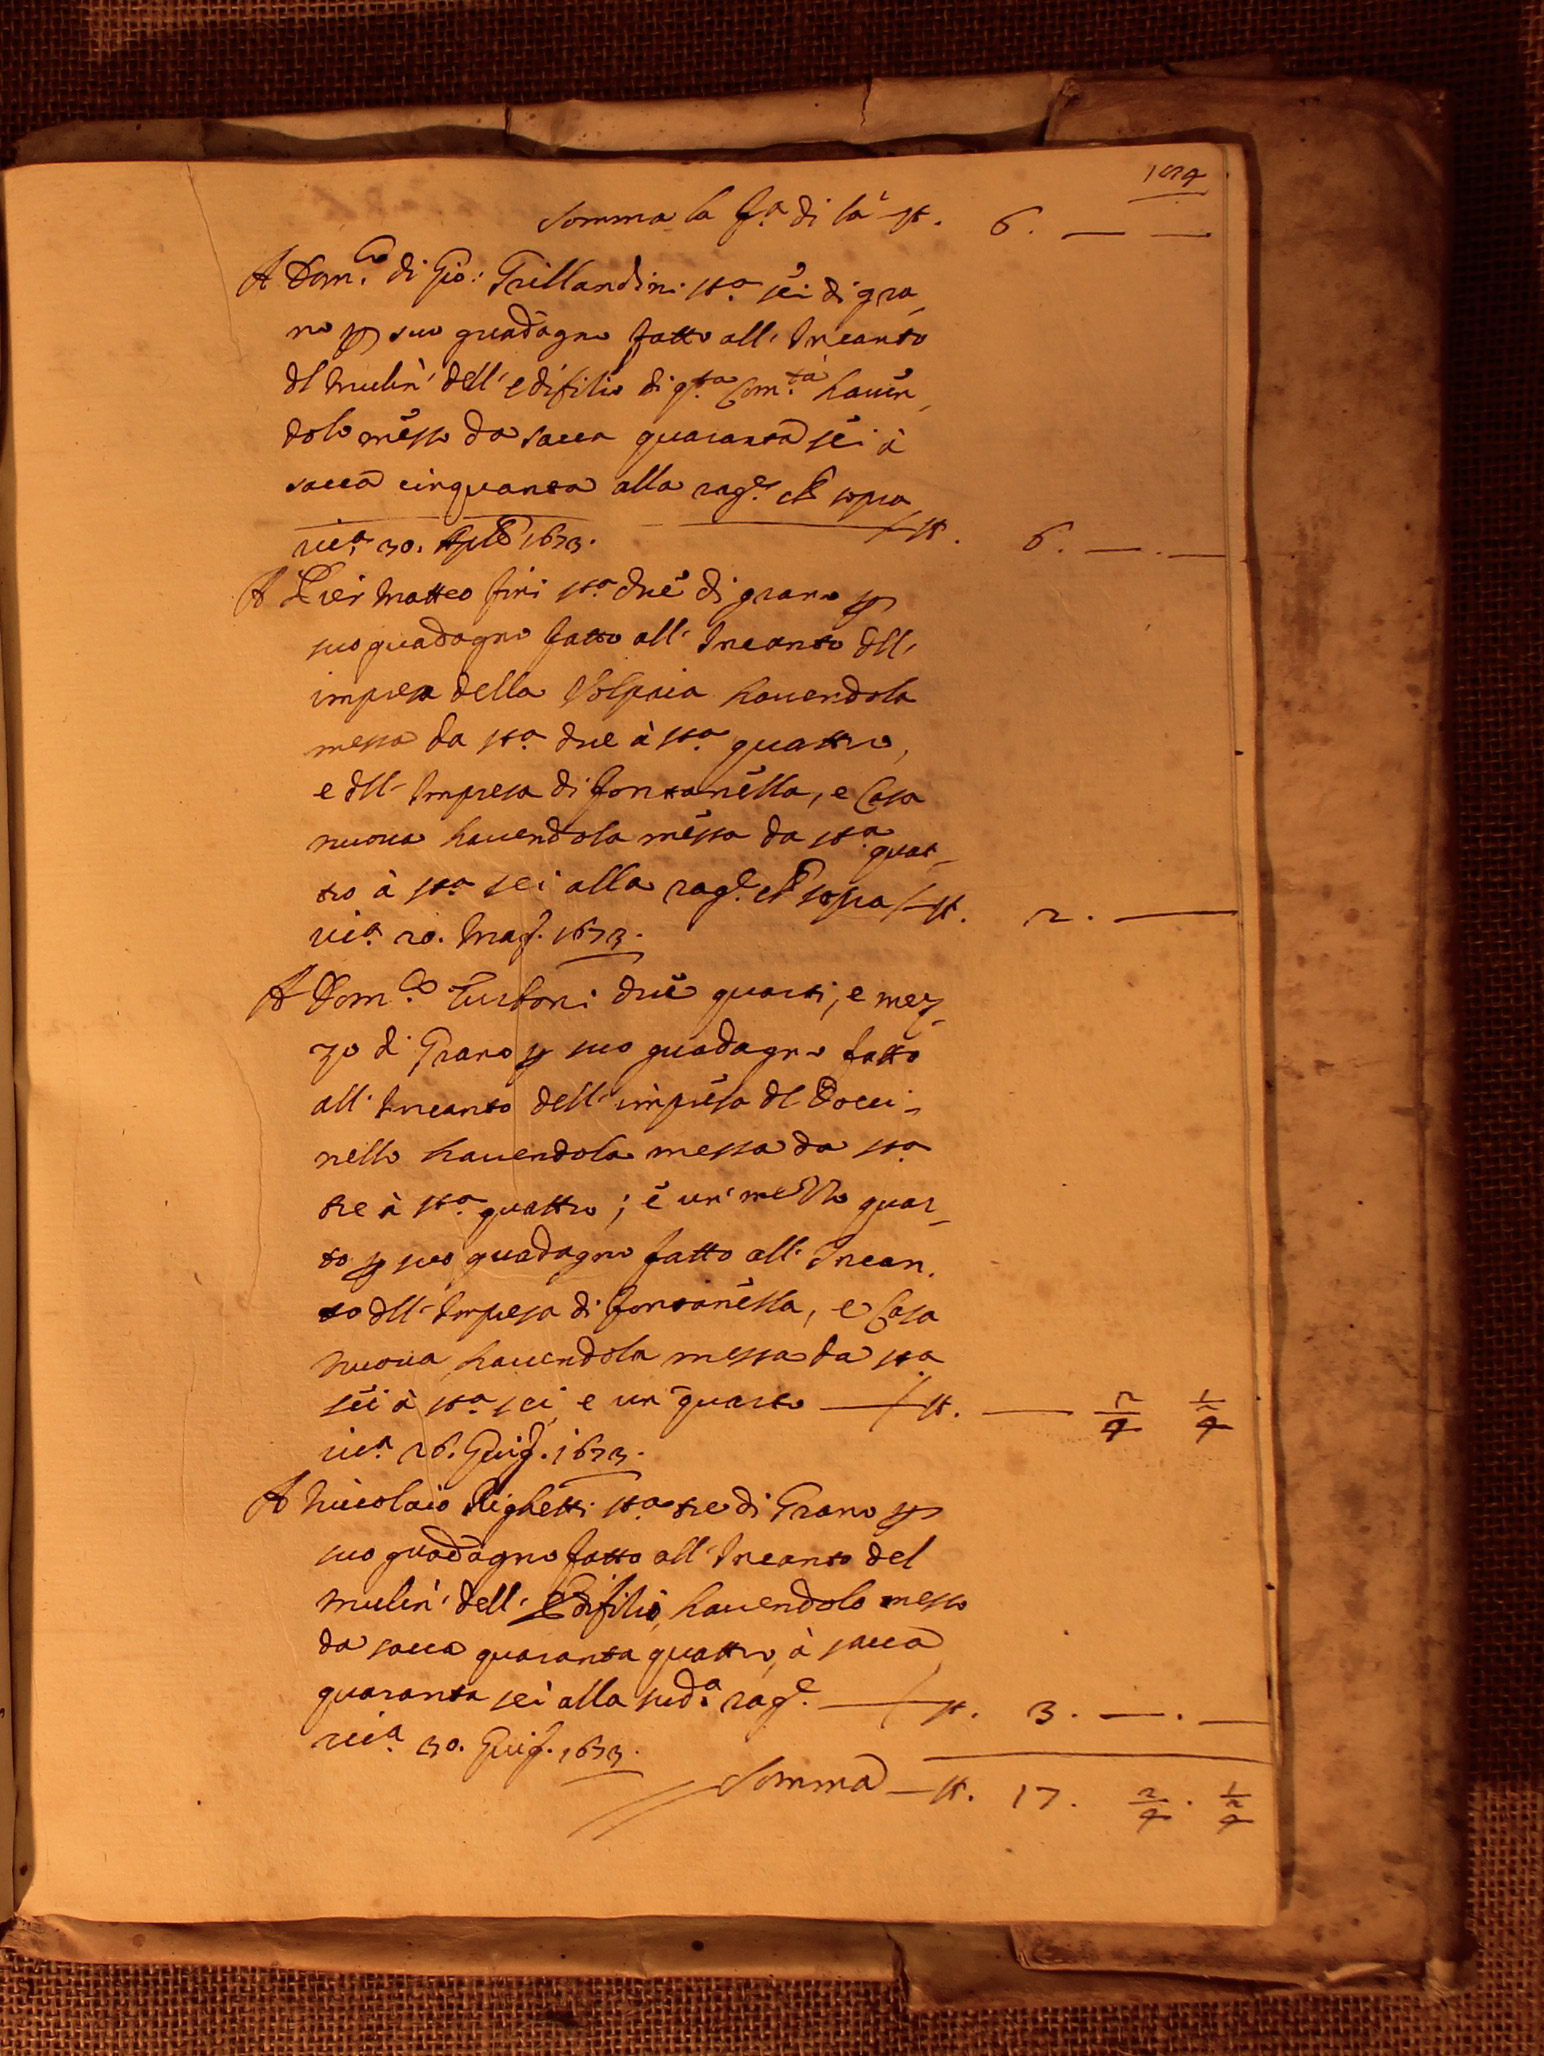 104
Somma la f.a di là st. 6. — —
A Dom.co di Gio: Grillandini sta. sei di gra
no p suo guadagno fatto all' Incanto
dl Mulin' dell' edifitio di q.ta Com.tà havén
dolo mésso da sacca quaranta séi à
sacca cinquanta alla rag.e ch sopra
—— st. 6. — . —
ric.a 30. Aple 1673.
A Pier Matteo fini sta. due di grano p
suo guadagno fatto all' Incanto dll'
impresa della Volpaia havendola
messa da sta. due à sta. quattro,
e dll' Impresa di fontanélla, e Casa
nuova havendola méssa da sta. quat
tro à sta. sei alla rag.e ch sopra — st. 2. —
ric.a 20. Mag. 1673.
A Dom.co Turboni due quarti, e mez
zo di Grano p suo guadagno fatto
all' Incanto dell' imprésa dl Docci
nello havendola messa da sta.
tre à sta. quattro; é un' mezzo quar
to p suo guadagno fatto all' Incan
to dll' Impresa di fontanélla, e Casa
nuova, havendola messa da sta.
séi à sta. sei, e un' quarto — st. — 2/4 1/2/4
ric.a 26. Giug. 1673.
A Niccolaio Righetti sta. tre di Grano p
suo guadagno fatto all' Incanto del
Mulin' dell' Edifitio, havendolo messo
da sacca quaranta quattro, à sacca
quaranta sei alla sud.a rag.e — st. 3. — . —
ric.a 30. Giug. 1673.
Somma — st. 17. 2/4 . 1/2/4